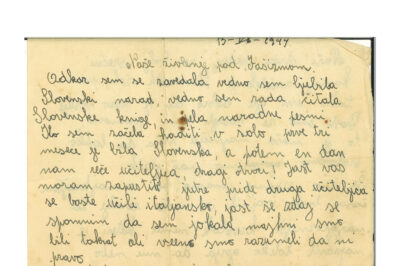 13-VI-1944
Naše živlenje pod Fašizmom.
Odkar sem se zavedala vedno sem ljubila
Slovenski narod, vedno sem rada čitala
Slovenske knige in pela naradne pesmi.
Ko sem začela haditi v šolo, prve tri
mesece je bila Slovenska, a potem en dan
nam reče učiteljica, dragi otroci! Jast vas
moram zapustit jutre pride druga učiteljica
se boste učili italjansko, jast se zdaj se
spomnim da sem jokala, majhni smo
bili takrat ali vseeno smo razumeli da ni
pravo